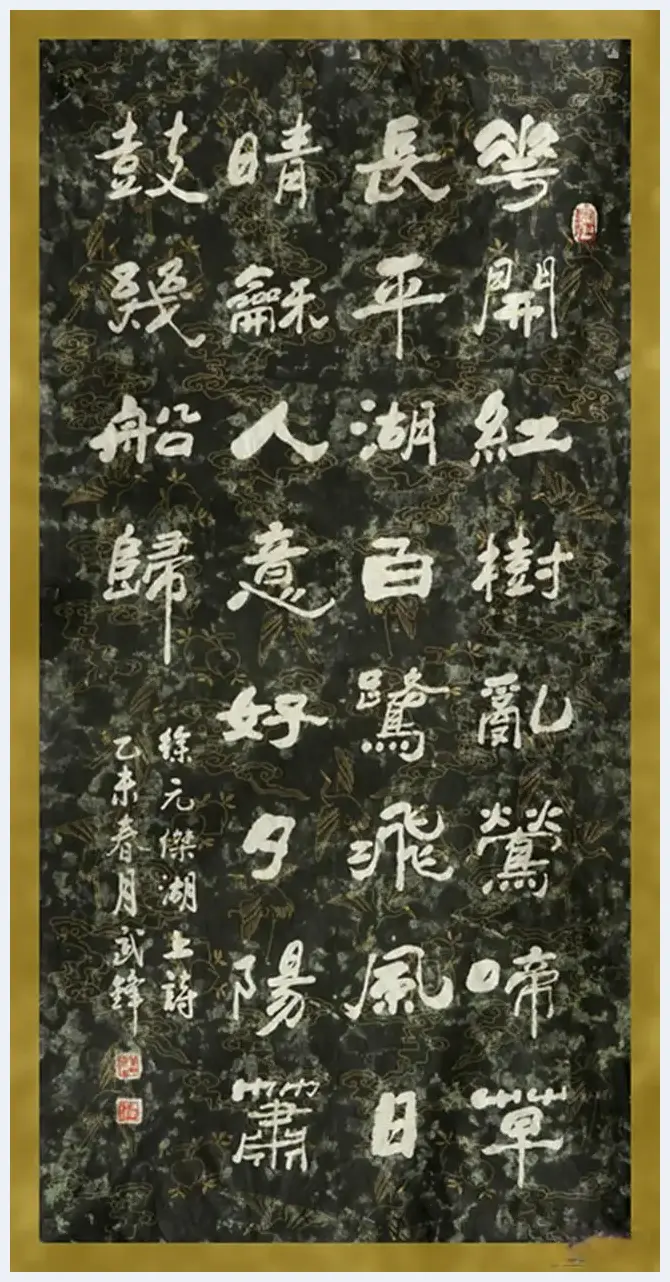 花開紅樹亂鶯啼草
長平湖白鷺飛風日
晴龢人意好夕陽簫
鼓幾船歸
徐元傑湖上詩
乙未春月武鋒